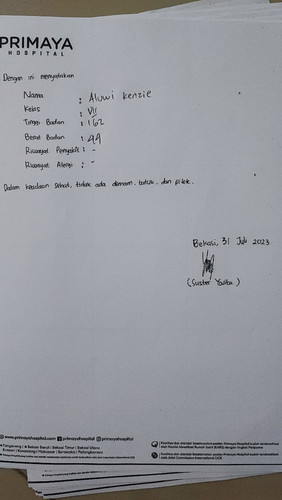 PRIMAYA
HOSPITAL
Dengan ini menyatakan
Nama : Aluwi Kenzie
Kelas : VII
Tinggi Badan : 162
Berat Badan : 44
Riwayat Penyakit : -
Riwayat Alergi : -
Dalam keadaan sehat, tidak ada demam, batuk, dan pilek.
Bekasi, 31 Juli 2023
(Suster Yulita)
www.primayahospital.com primayahospital primayahospital